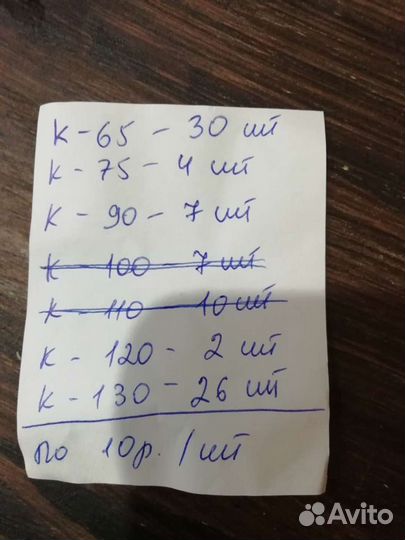 К - 65 - 30 шт
К - 75 - 4 шт
К - 90 - 7 шт
К - 100 - 7 шт
К - 110 - 10 шт
К - 120 - 2 шт
К - 130 - 26 шт
по 10р. /шт
Avito